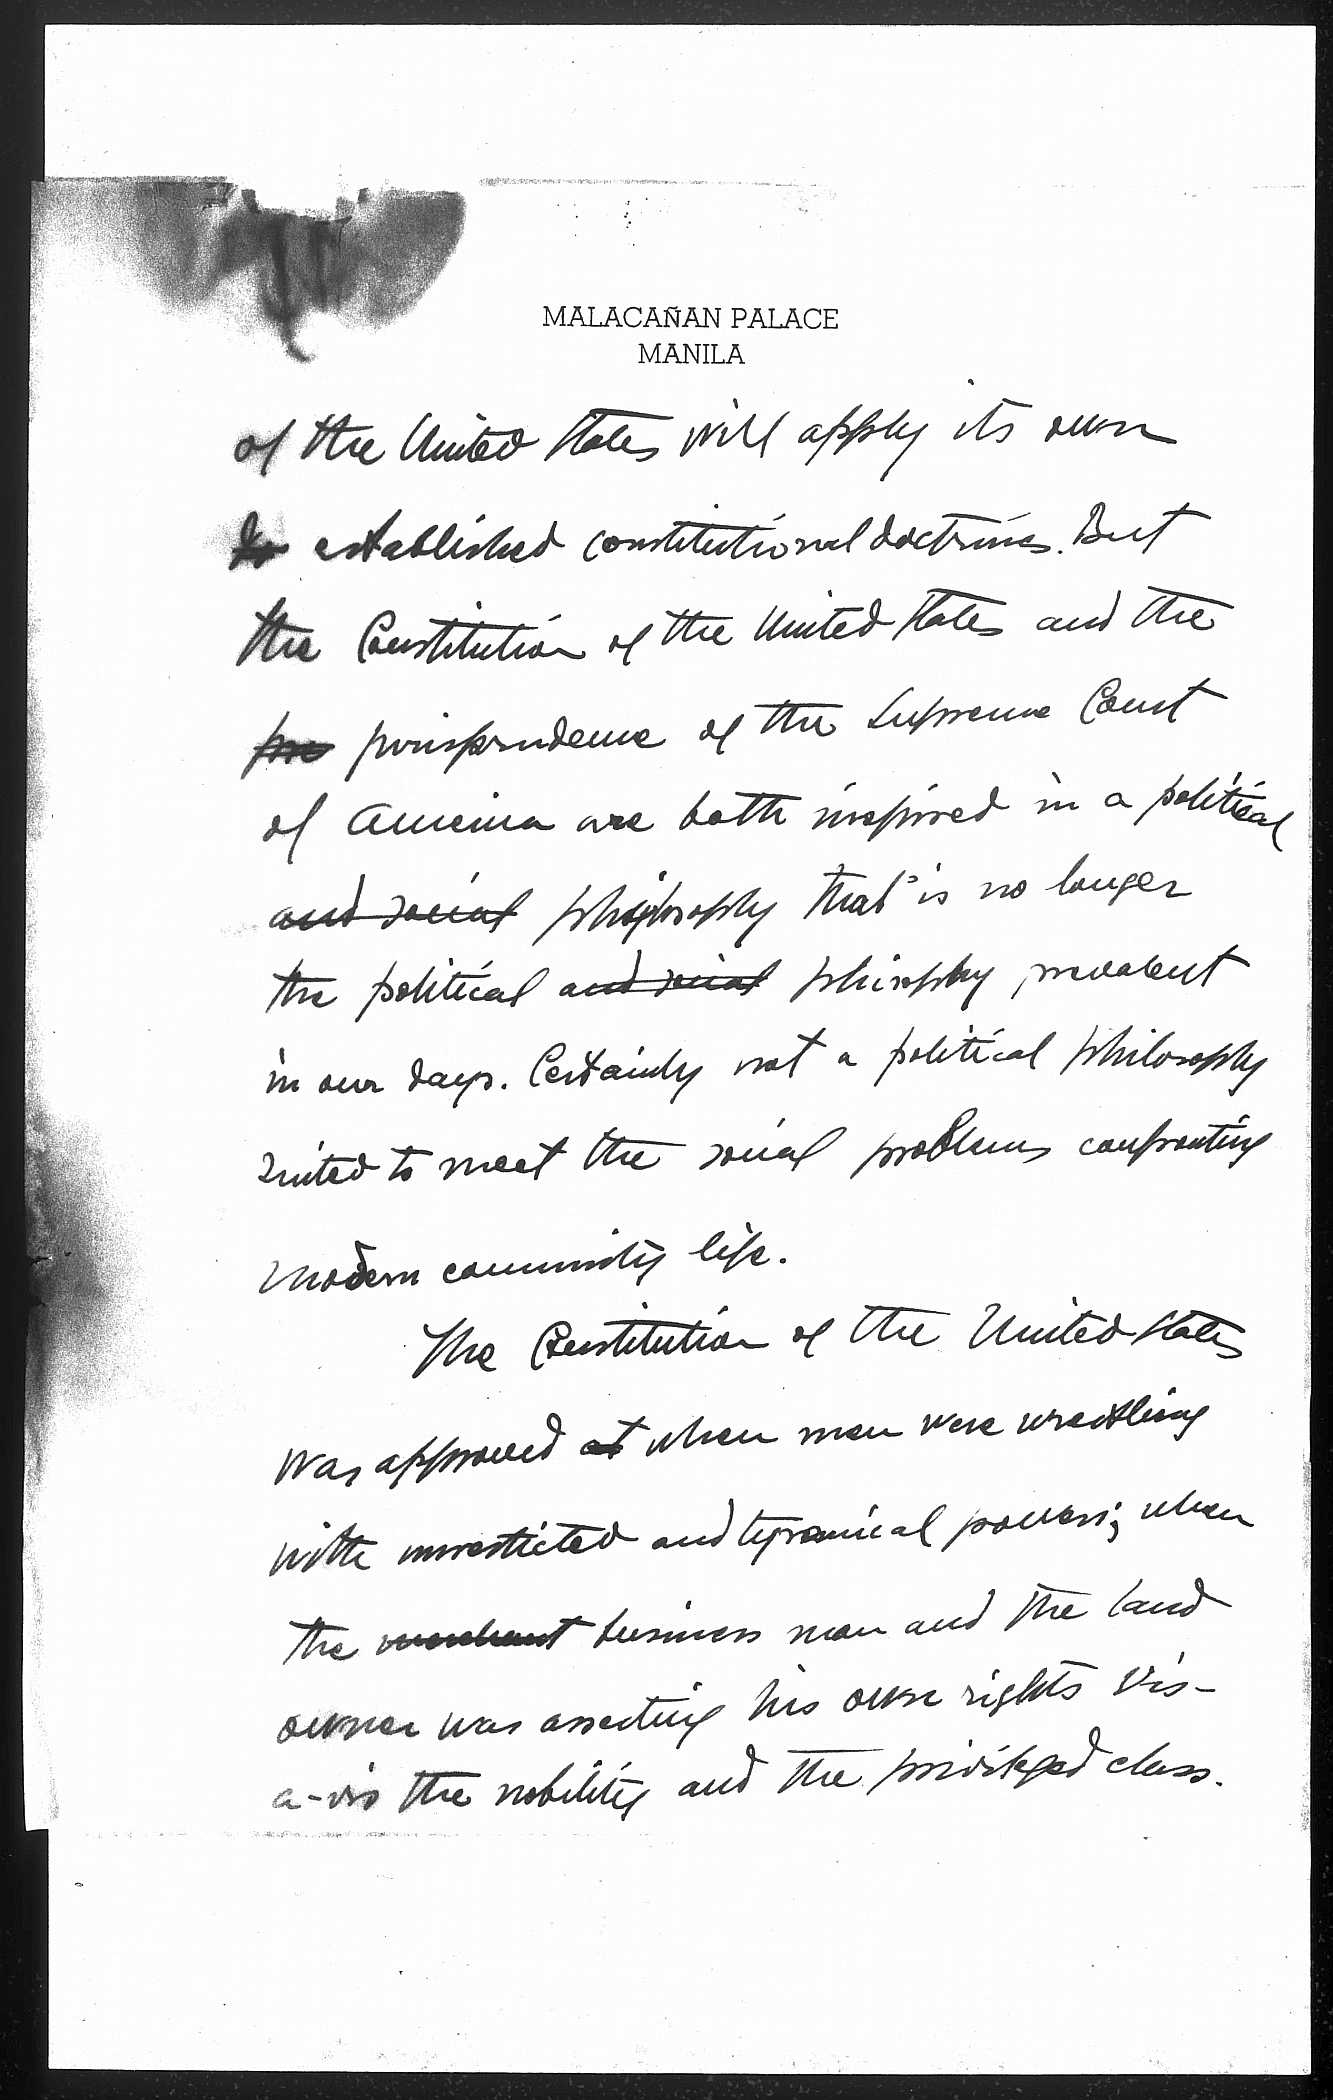 MALACAÑAN PALACE
MANILA
of the United States will apply its own
established constitutional doctrines. But
the Constitution of the United States and the
jurisprudence of the Supreme Court
of America are both inspired in a political
and social philosophy that is no longer
the political and social phisophy prevalent
in our days. Certainly not a political philosophy
suited to meet the social problems confronting
modern community life.
The Constitution of the United States
was approved at when men were wrestling
with unrestricted and tyranical powers; when
the merchant business man and the land
owner was asserting his own rights vis-
a-vis the nobility and the privileged class.